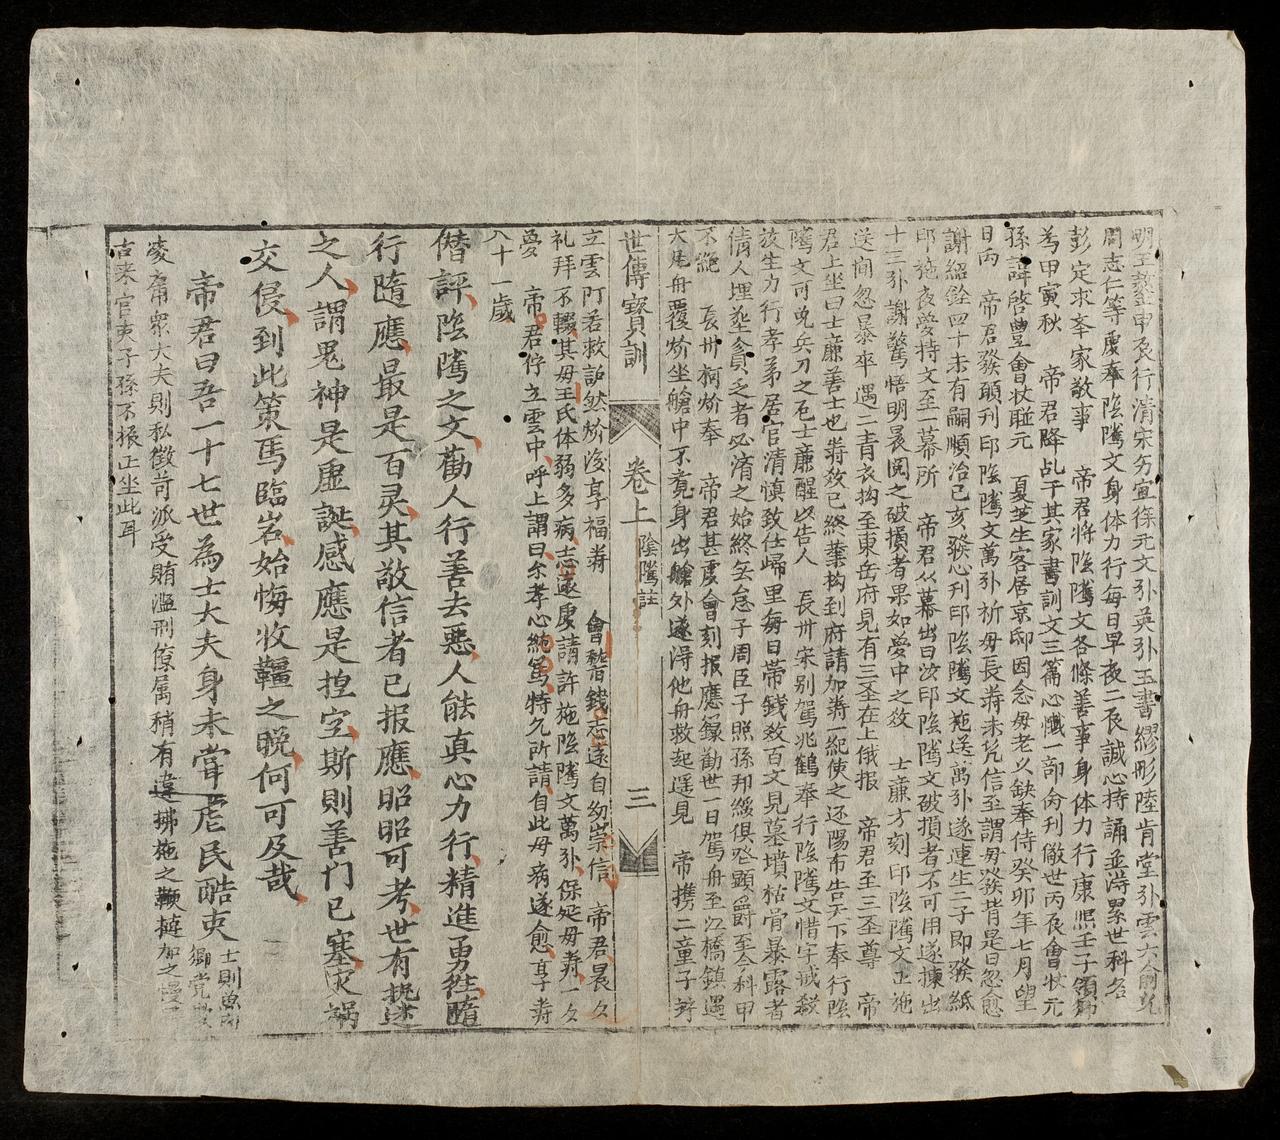 明王鏊申長行清宋匇宜徐元文外英外玉書繆彤陸肯堂外雲六俞兌
周志仁等虔奉陰隲文身体力行每日早夜二辰誠心持誦並淂累世科名
彭定求奉家敬事　帝君將陰隲文各條善事身体力行康熙壬子領鄉
為甲寅秋　帝君降乩于其家書訓文三篇心懺一部命刊儆世丙辰會狀元
孫諱啓豊會状聯元　夏芝生客居京邸因念毋老乆缺奉侍癸卯年七月望
日丙　帝君發願刊印陰隲文萬外祈毋長壽未兊信至謂毋發背是日忽愈
謝紹銓四十未有嗣順治己亥發心刊印陰隲文施送萬外遂連生二子即發紙
印施夜夢持文至一幕所　帝君从幕出曰汝印陰隲文破損者不可用遂揀出
十三外謝驚悟明晨閱之破損者果如夢中之效　士蔗方刻印陰隲文止施
送間忽暴卒遇二青衣拘至東岳府見有三圣在上俄报　帝君至三圣尊　帝
君上坐曰士蔗善士也壽效已終葉拘到府請加壽一紀使之还陽布告天下奉行陰
隲文可免兵刀之厄士蔗醒以告人　長卅宋别駕兆鶴奉行陰隲文惜字诫殺
放生力行孝弟居官清慎致仕歸里每日帶錢数百文見墓墳枯骨暴露者
倩人埋塟貧乏者必濟之始終無怠子周臣子照孫邦綏俱登顯爵至今科甲
不絶　長卅柯炌奉　帝君甚虔會刻报應籙勸世一日駕舟至江橋鎮遇
大風舟覆炌坐艙中不竟身出艙外遂淂他舟救起遥見　帝携二童子辟
世傳寳訓　卷上　陰隲註　三
立雲阿君救訫然炌後享福壽　會嵇錢志遂自幼崇信　帝君晨夕
礼拜不輟其毋王氏体弱多病志遂虔請許施陰隲文萬外保延毋壽一夕
夢　帝君佇立雲中呼上謂曰尒孝心純篤特允所請自此毋病遂愈享壽
八十一歲
僭評陰隲之文勸人行善去惡人能真心力行精進勇往隨
行隨應最是百灵其敬信者已报應昭昭可考世有執迷
之人謂鬼神是虛誕感應是揑空斯則善门已塞灾禍
交侵到此策馬臨岩始悔收韁之晩何可及哉
帝君曰吾一十七世為士大夫身未甞虐民酷吏
士則魚肉
鄉党
凌甭衆大夫則私徵苛派受賄滥刑僚属稍有違拂施之鞭撻加之慢
古来官吏子孫不振正坐此耳